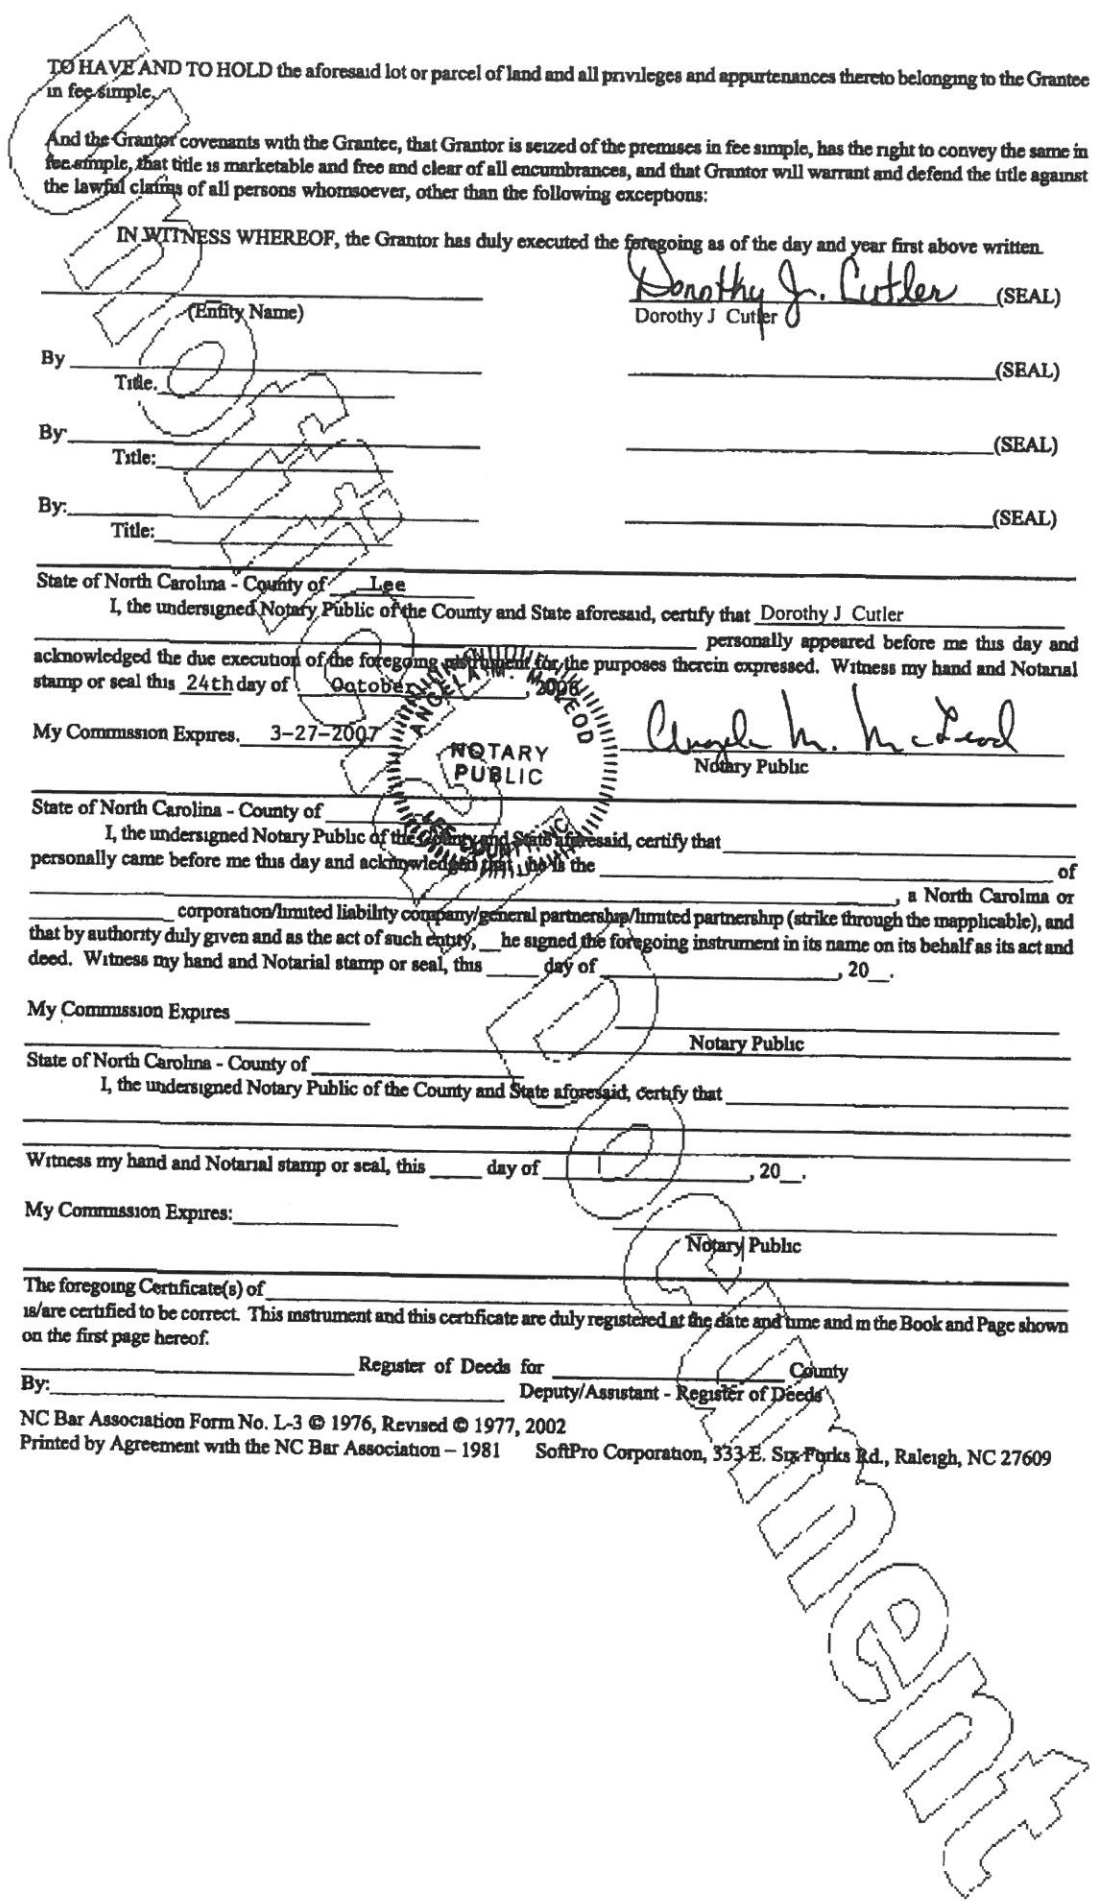 TO HAVE AND TO HOLD the aforesaid lot or parcel of land and all privileges and appurtenances thereto belonging to the Grantee
in fee simple.
And the Grantor covenants with the Grantee, that Grantor is seized of the premises in fee simple, has the right to convey the same in
fee simple, that title is marketable and free and clear of all encumbrances, and that Grantor will warrant and defend the title against
the lawful claims of all persons whomsoever, other than the following exceptions:
IN WITNESS WHEREOF, the Grantor has duly executed the foregoing as of the day and year first above written.
Dorothy J. Cutler (SEAL)
(Entity Name) Dorothy J Cutler
By (SEAL)
Title.
By: (SEAL)
Title:
By: (SEAL)
Title:
State of North Carolina - County of Lee
I, the undersigned Notary Public of the County and State aforesaid, certify that Dorothy J Cutler
personally appeared before me this day and
acknowledged the due execution of the foregoing instrument for the purposes therein expressed. Witness my hand and Notarial
stamp or seal this 24th day of October, 2006
ANGELA M. McLEOD
NOTARY
PUBLIC
LEE COUNTY, NC
My Commission Expires. 3-27-2007 Angela M. McLeod
Notary Public
State of North Carolina - County of
I, the undersigned Notary Public of the County and State aforesaid, certify that
personally came before me this day and acknowledged that _he is the of
, a North Carolina or
corporation/limited liability company/general partnership/limited partnership (strike through the inapplicable), and
that by authority duly given and as the act of such entity, __he signed the foregoing instrument in its name on its behalf as its act and
deed. Witness my hand and Notarial stamp or seal, this ____ day of ____, 20__.
My Commission Expires
Notary Public
State of North Carolina - County of
I, the undersigned Notary Public of the County and State aforesaid, certify that
Witness my hand and Notarial stamp or seal, this ____ day of ____, 20__.
My Commission Expires:
Notary Public
The foregoing Certificate(s) of
is/are certified to be correct. This instrument and this certificate are duly registered at the date and time and in the Book and Page shown
on the first page hereof.
Register of Deeds for County
By: Deputy/Assistant - Register of Deeds
NC Bar Association Form No. L-3 © 1976, Revised © 1977, 2002
Printed by Agreement with the NC Bar Association – 1981 SoftPro Corporation, 333 E. Six Forks Rd., Raleigh, NC 27609
Unofficial Document